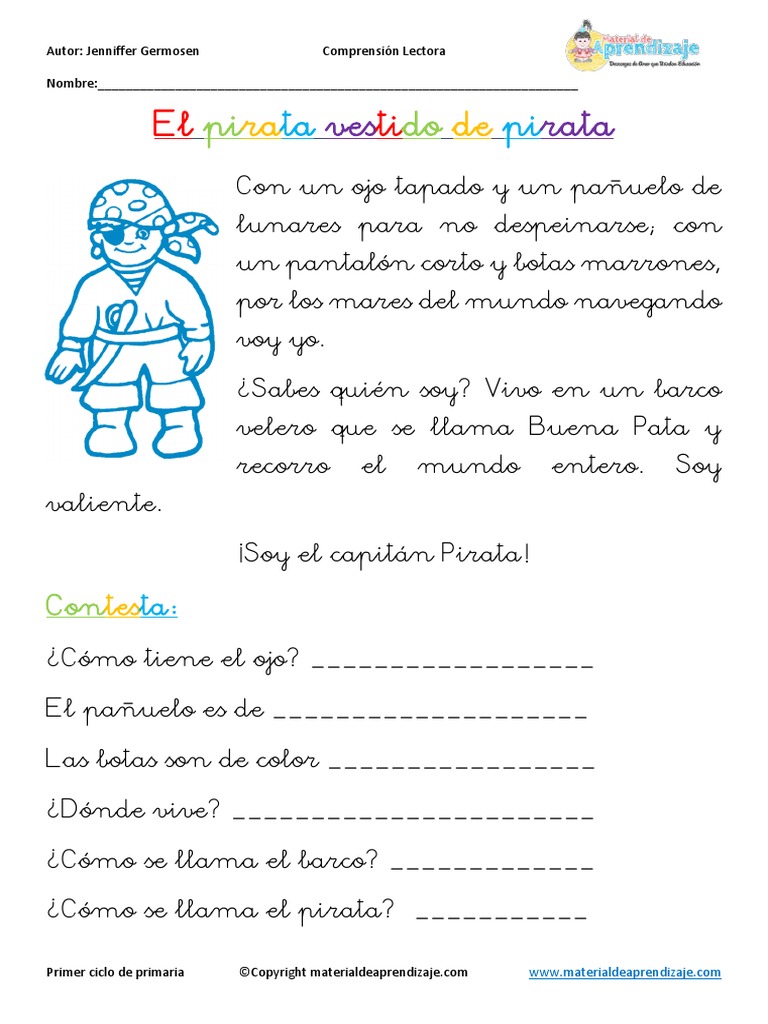 Autor: Jenniffer Germosen Comprensión Lectora
Material de
Aprendizaje
Nombre:____________________________________________________________________
El pirata vestido de pirata
Con un ojo tapado y un pañuelo de
lunares para no despeinarse; con
un pantalón corto y botas marrones,
por los mares del mundo navegando
voy yo.
¿Sabes quién soy? Vivo en un barco
velero que se llama Buena Pata y
recorro el mundo entero. Soy
valiente.
¡Soy el capitán Pirata!
Contesta:
¿Cómo tiene el ojo? __________________
El pañuelo es de ____________________
Las botas son de color _________________
¿Dónde vive? _______________________
¿Cómo se llama el barco? _____________
¿Cómo se llama el pirata? ___________
Primer ciclo de primaria ©Copyright materialdeaprendizaje.com www.materialdeaprendizaje.com